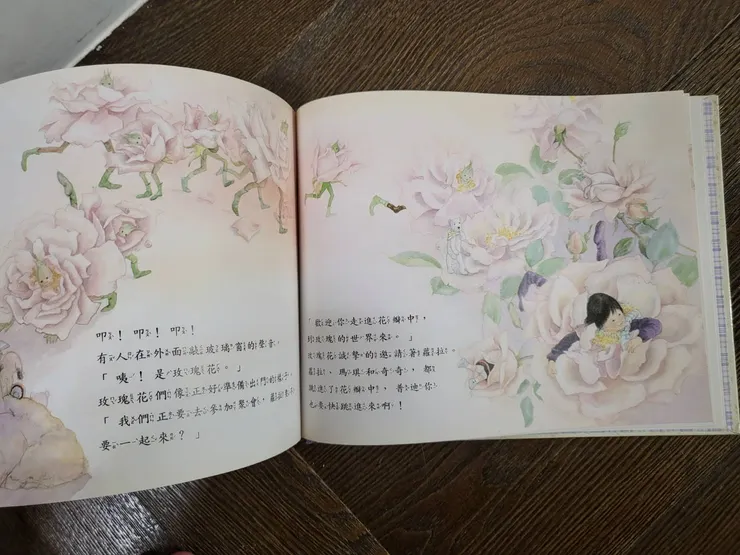 叩！叩！叩！
有人在外面敲玻璃窗的聲音。
「咦！是玫瑰花。」
玫瑰花們像正好準備出門的樣子。
「我們正要去參加聚會，蘿拉
要一起來？」
「歡迎你走進花瓣中！
玫瑰的世界來。」
玫瑰花誠摯的邀請著蘿拉。
蘿拉、瑪琪和奇奇，都
跳進了花瓣中，普迪你
也要快跳進來啊！